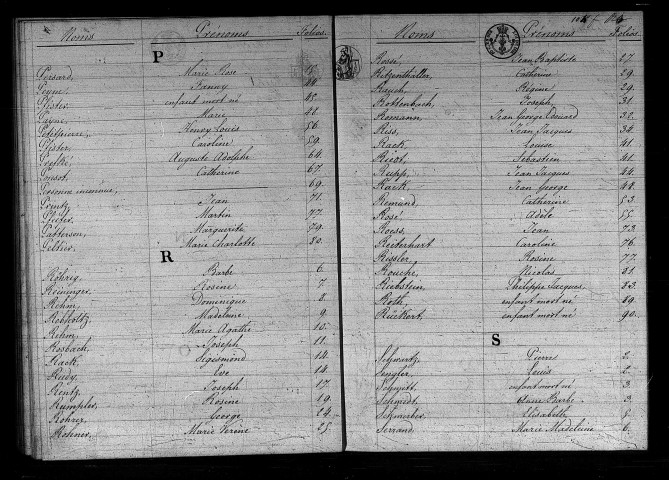 Noms Prénoms Folios
P
Persard, Marie Rose
Peyne, Fanny 44.
Pfister, enfant mort né 45.
Payne, Marie 48.
Petitpierre, Henry Louis 56.
Pfister, Caroline 59.
Auguste Adolphe 64.
Ponsot, Catherine 67.
Personne inconnue, 69.
Prentz, Jean 71.
Martin 77.
Patterson, Marguerite 79.
Peltier, Marie Charlotte 80.
R
Röhrig, Barbe 6.
Reininger, Rosine 7.
Rehm, Dominique 8.
Robholtz, Madeleine 9.
Rehm, Marie Agathe 10.
Rosbach, Joseph 11.
Rack, Sigismond 14.
Rudy, Eve 14.
Rentz, Joseph 17.
Rumpler, Rosine 19.
Rohrer, George 24.
Rohner, Marie Verène 25.
Noms Prénoms Folios
Rossé, Jean Baptiste 27.
Ritzenthaller, Catherine 29.
Rauch, Régine 29.
Rottenbach, Joseph 31.
Romann, Jean George Edouard 32.
Riss, Jean Jacques 34.
Rack, Louise 41.
Ricot, Sébastien 41.
Rupp, Jean Jacques 44.
Rack, Jean George 48.
Remund, Catherine 53.
Rosé, Adèle 55.
Roess, Jean 73.
Reiberhart, Caroline 76.
Rissler, Rosine 77.
Rouche, Nicolas 81.
Riebstein, Philippe Jacques 83.
Roth, enfant mort né 89.
Rückert, enfant mort né 90.
S
Schwartz, Pierre 2.
Sengler, Louis 2.
Schmitt, enfant mort né 3.
Schmidt, Anne Barbe 3.
Schmerber, Elisabeth 5.
Serrand, Marie Madeleine 6.